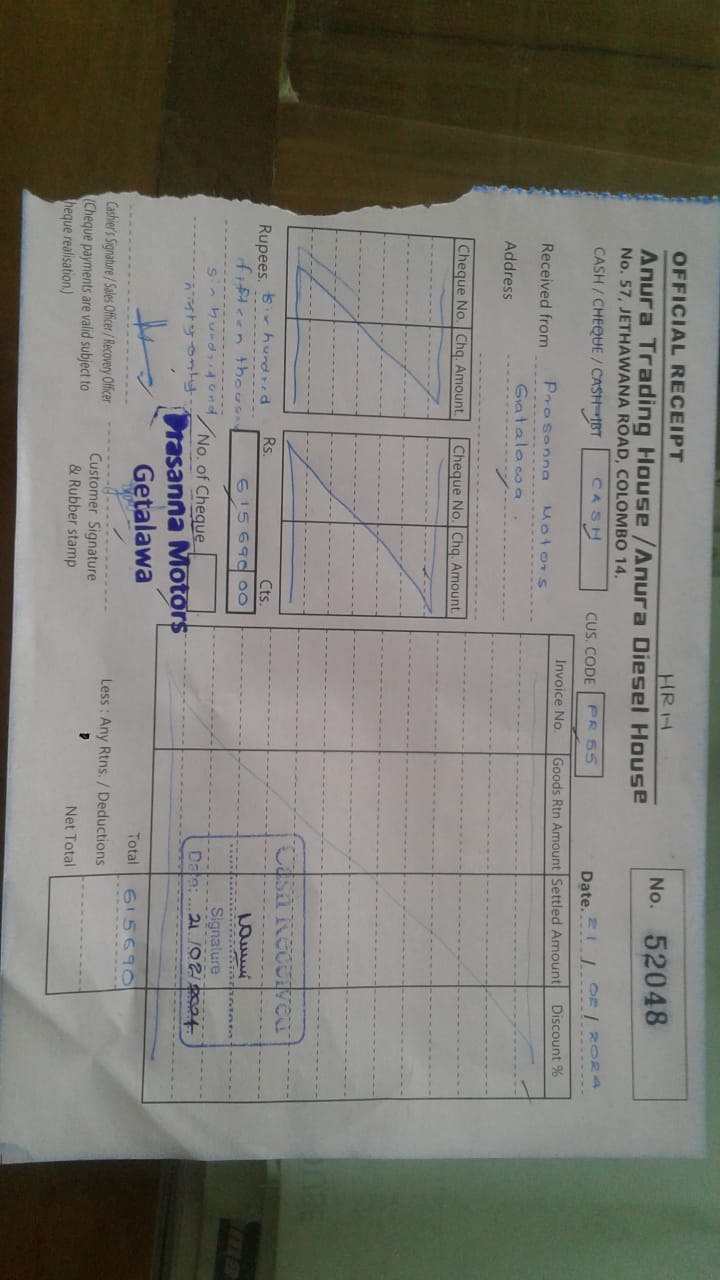 OFFICIAL RECEIPT
HRM
Anura Trading House /Anura Diesel House
No. 57, JETHAWANA ROAD, COLOMBO 14.
No. 52048
CASH / CHEQUE / CASH-IBT CASH CUS. CODE PR 55 Date. 21 / 02 / 2024
Received from Prasanna Motors
Address Gatalawa.
Cheque No. Chq. Amount Cheque No. Chq. Amount
Invoice No. Goods Rtn Amount Settled Amount Discount %
Rupees. Six hundred
fifteen thousand
six hundred and
ninty only.
Rs. Cts.
615690 00
No. of Cheque
Prasanna Motors
Getalawa
Cash Received
Signature
Date: 21/02/2024
Cashier's Signature / Sales Officer / Recovery Officer
(Cheque payments are valid subject to
heque realisation.)
Customer Signature
& Rubber stamp
Total 615690
Less : Any Rtns. / Deductions
Net Total